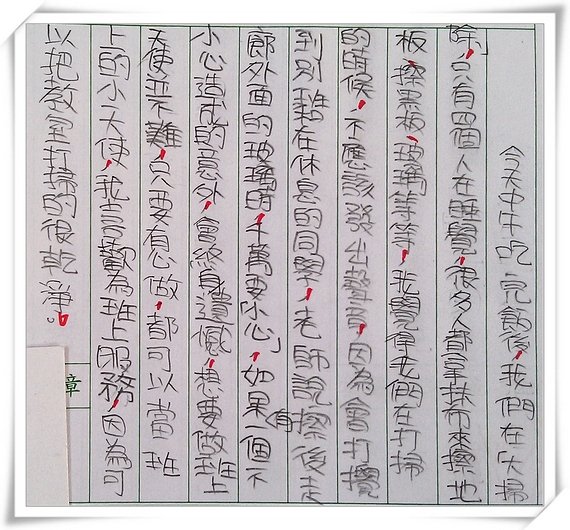 今天中午吃完飯後，我們在「大掃
除」，只有四個人在睡覺，很多人都拿抹布來擦地
板、擦黑板、玻璃等等，我覺得我們在打掃
的時候，不應該發出聲音，因為會打擾
到別班在休息的同學，老師說擦後走
廊外面的玻璃時，千萬要「小心」，如果有一個不
小心造成的意外，會終身遺憾，想要做班上
天使並不難，只要有心做，都可以當班
上的小天使，我喜歡為班上服務，因為可
以把教室打掃的很乾淨。
章